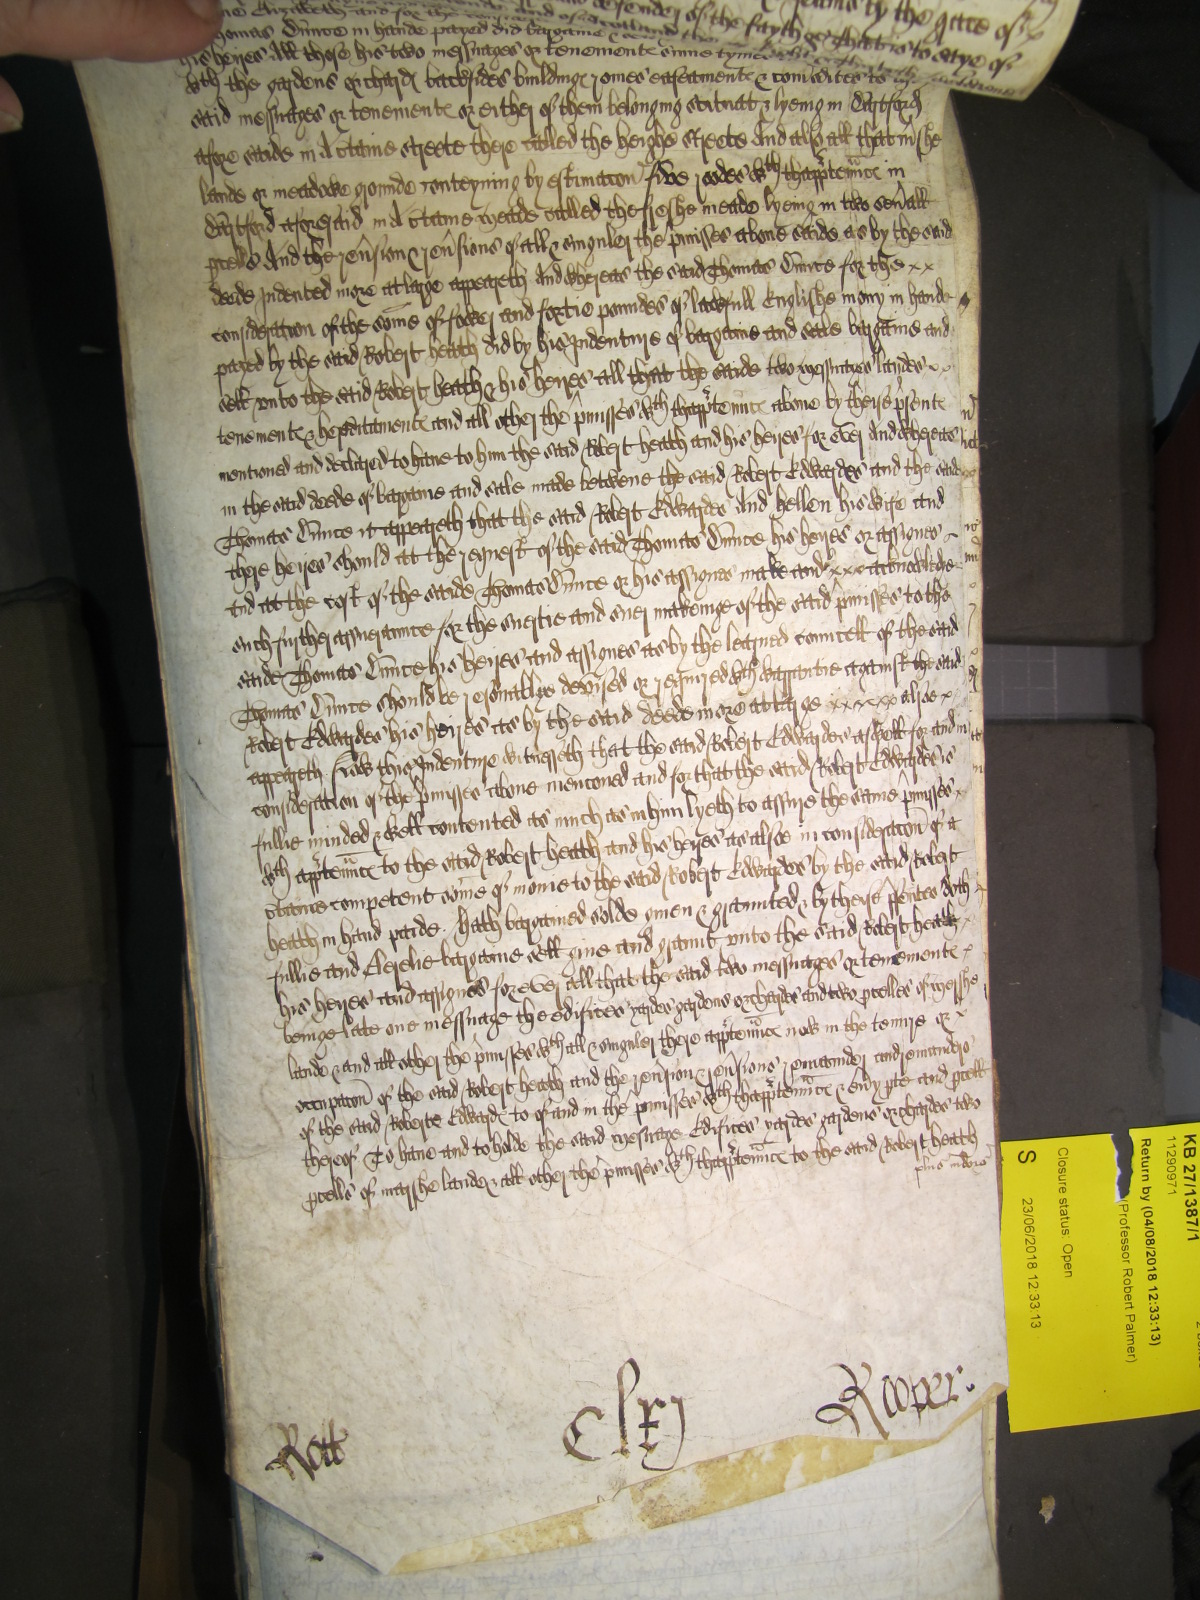 defender of the fayth &c That is to saye of
Thomas in hande payed did bargaine
his heyres All those his two messuages or tenementℯ
wth the gardens orchardℯ backsides buildingℯ romes easementℯ & comodities to
said messuages or tenementℯ or either of them belonging scituat & lyeing in Dartford
afore saide in A ctaine streete there called the heighe streete And also all that mershe
lande or meadowe grounde conteyning by estimacon five roodes wth thapptennce in
Dartford aforesaid in A ctaine meade called the freshe meade lyeing in two seuall
pcells And the reusion & reusions of all & singuler the pmisses aboue saide as by the said
deede Indented more at large appeareth And whereas the said Thomas for the xx
consideration of the some of fower and fortie poundes of lawfull Englishe mony in hande
payed by the said Robert heath did by his Indenture of bargaine and sale bargaine and
sell vnto the said Robert heath & his heyres all that the saide two messuages landes
tenementℯ hereditamentℯ and all other the pmisses wth thapptennce aboue by these psentℯ
mentioned and declared to haue to him the said Robert heath and his heyres for euer And whereas
in the said deede of bargaine and sale made betwene the said Robert Edwardes and the saide
Thomas it appeareth that the said Robert Edwardes And hellen his wife and
there heyres should at the request of the said Thomas his heyres or assignes
and at the cost of the saide Thomas or his assignes make and xxx acknowledge
such further assurance for the suertie and suer makeinge of the said pmisses to the
saide Thomas his heyres and assignes as by the learned councell of the said
Thomas should be resonablye devised or required wth warrantie against the said
Robert Edwardes his heyres as by the said deede more at large xxxxxx alsoe x
appeareth Now this Indenture witnesseth that the said Robert Edwardes aswell for and in
consideration of the pmisses aboue mencioned and for that the said Robert Edwardes is
fullie minded & well contented as much as in him lyeth to assure the same pmisses x
wth apptennce to the said Robert heath and his heyres as alsoe in consideracon of a
ctaine competent some of monie to the said Robert Edwardes by the said Robert
heath in hand paide. Hath bargained solde giuen & graunted & by these psentes doth
fullie and Clerelie bargaine sell giue and graunt vnto the said Robert heath
his heyres and assignes for euer all that the said two messuages or tenementℯ x
beinge late one messuage the edifices yardes gardens orchardes and two pcelles of mershe
landℯ and all other the pmisses wth all & singuler there apptennce now in the tenure or x
occupacon of the said Robert heath and the reusion & reusions remainder and remainders
of the said Roberte Edwardℯ to of and in the pmisses wth thapptennce & euy pte and pcell
thereof To haue and to holde the said messuage Edifices yardes gardens orchardes two
pcells of marshe landℯ & all other the pmisses wth thapptennce to the said Robert heath
plus indors
Rott
Clxj
Rooper.
KB 27/1387/1
11290971
Return by (04/08/2018 12:33:13)
(Professor Robert Palmer)
Closure status: Open
S 23/06/2018 12:33:13